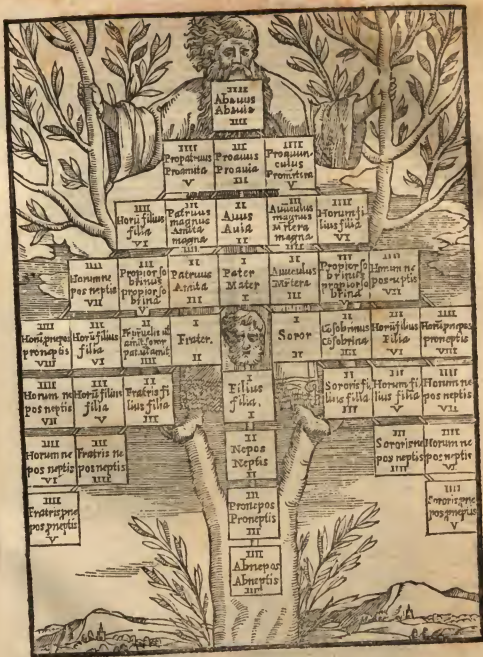 IIII
Abauus
Abauia
IIII
IIII
Propatruus
Proamita
V
III
Proauus
Proauia
III
IIII
Proauun-
culus
Promrtera
V
IIII
Horū filius
filia
VI
III
Patruus
magnus
Amita
magna
II
Auus
Auia
II
III
Auuculus
magnus
Mrtera
magna
IIII
Horum fi-
lius filia
VI
IIII
Horum ne
pos neptis
VII
III
Propior so
brinus
propior so
brina
V
II
Patruus
Amita
III
I
Pater
Mater
I
II
Auuculus
Mrtera
III
III
Propior so
brinus
propior so
brina
VI
IIII
Horum ne
pos neptis
VII
IIII
pronepos
proneptis
VIII
III
Horū filius
filia
VI
II
I
Frater.
II
I
Soror
II
II
Cōsobrinus
Cōsobrina
IIII
III
Horū filius
Filia
IIII
proneptis
VIII
IIII
Horum ne
pos neptis
VI
III
Horū filius
filia
V
II
Fratris fi
lius filia
III
I
Filius
filia.
I
II
Sororis fi,
lius filia
III
III
Horum fi,
lius filia
V
IIII
Horum ne
pos neptis
IIII
Horum ne
pos neptis
VI
III
Fratris ne
pos neptis
IIII
II
Nepos
Neptis
II
III
Sororis ne
pos neptis
IIII
IIII
Horum ne
pos neptis
VI
IIII
Fratris pne
pos pneptis
V
III
Pronepos
Proneptis
III
IIII
Sororis pne
pos pneptis
V
IIII
Abnepos
Abneptis
IIII